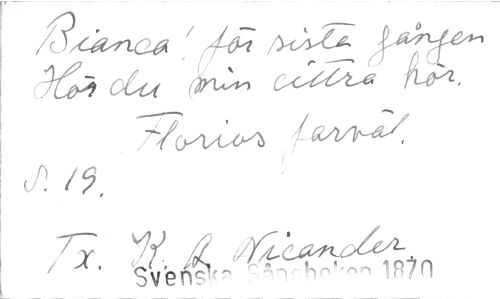 Bianca! för sista gången
Hör du min cittra hör.
Florios farväl.
S. 19.
Tx. K. A. Nicander
Svenska Sångboken 1870